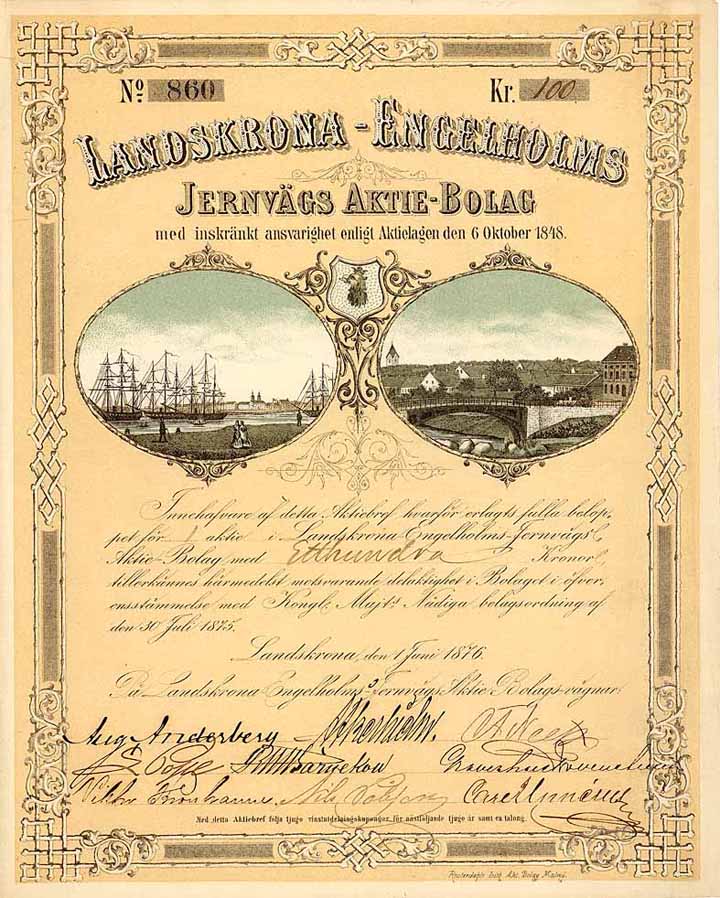 No. 860 Kr. 100
LANDSKRONA-ENGELHOLMS
JERNVÄGS AKTIE-BOLAG
med inskränkt ansvarighet enligt Aktielagen den 6 Oktober 1848.
Innehafvare af detta Aktiebref hvarför erlagts fulla belop-
pet för 1 aktie i Landskrona Engelholms-Jernvägs
Aktie-Bolag med Etthundra Kronor,
tillerkännes härmedelst motsvarande delaktighet i Bolaget i öfver-
ensstämmelse med Kongl. Majts Nådiga bolagsordning af
den 30 Juli 1875.
Landskrona, den 1 Juni 1876.
På Landskrona Engelholms-Jernvägs Aktie Bolags vägnar:
Aug. Anderberg
Nils
Carl
Med detta Aktiebref följa tjugo vinstutdelningskuponger för nästföljande tjugo år samt en talong.
Lith. Akt. Bolag Malmö.